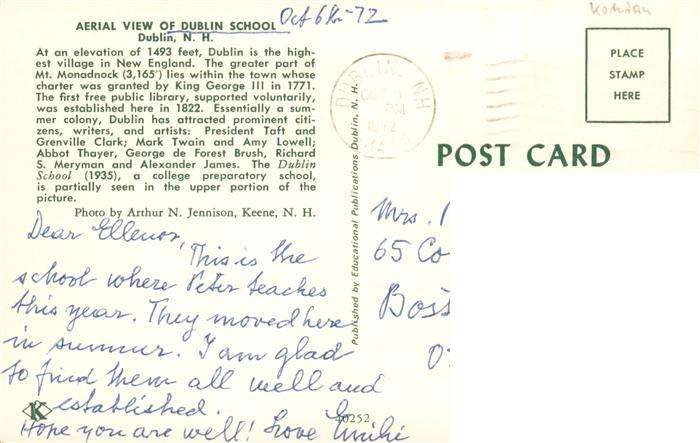 AERIAL VIEW OF DUBLIN SCHOOL
Dubl̇in, N. H.
At an elevation of 1493 feet, Dublin is the high-
est village in New England. The greater part of
Mt. Monadnock (3,165') lies within the town whose
charter was granted by King George III in 1771.
The first free public library, supported voluntarily,
was established here in 1822. Essentially a sum-
mer colony, Dublin has attracted prominent citi-
zens, writers, and artists: President Taft and
Grenville Clark; Mark Twain and Amy Lowell;
Abbot Thayer, George de Forest Brush, Richard
S. Meryman and Alexander James. The Dublin
School (1935), a college preparatory school,
is partially seen in the upper portion of the
picture.
Photo by Arthur N. Jennison, Keene, N. H.
Oct 6th-72
Dear Ellenor,
This is the
school where Peter teaches
this year. They moved here
in summer. I am glad
to find them all well and
established.
Hope you are well! Love Emihi
K
40252
Published by Educational Publications, Dublin, N. H.
DUBLIN, NH
OCT
PM
1972
PLACE
STAMP
HERE
POST CARD
Mrs.
65 Co
Bos
0